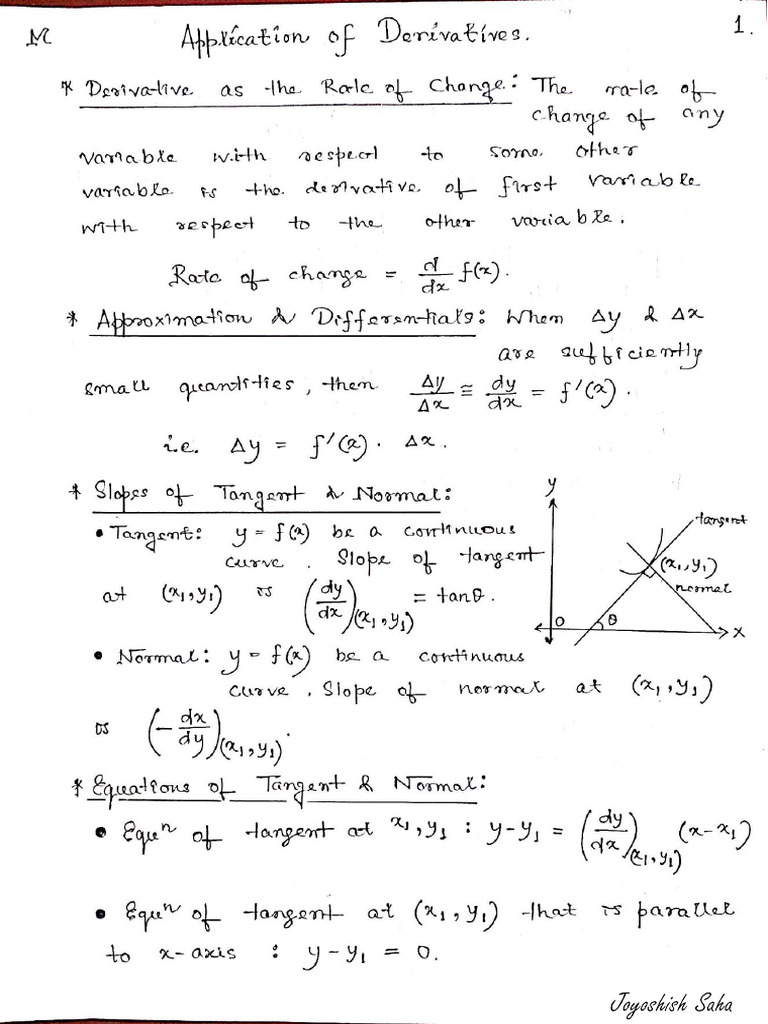 M Application of Derivatives. 1.
* Derivative as the Rate of Change: The rate of
change of any
variable with respect to some other
variable is the derivative of first variable
with respect to the other variable.
Rate of change = d/dx f(x).
* Approximation & Differentials: When Δy & Δx
are sufficiently
small quantities, then Δy/Δx ≅ dy/dx = f'(x).
i.e. Δy = f'(x). Δx.
* Slopes of Tangent & Normal:
• Tangent: y = f(x) be a continuous
curve. Slope of tangent
at (x₁,y₁) is (dy/dx)(x₁,y₁) = tanθ.
y
tangent
(x₁,y₁)
normal
O θ x
• Normal: y = f(x) be a continuous
curve. Slope of normal at (x₁,y₁)
is (-dx/dy)(x₁,y₁).
* Equations of Tangent & Normal:
• Equⁿ of tangent at x₁,y₁ : y-y₁ = (dy/dx)(x₁,y₁) (x-x₁)
• Equⁿ of tangent at (x₁,y₁) that is parallel
to x-axis : y-y₁ = 0.
Joyoshish Saha